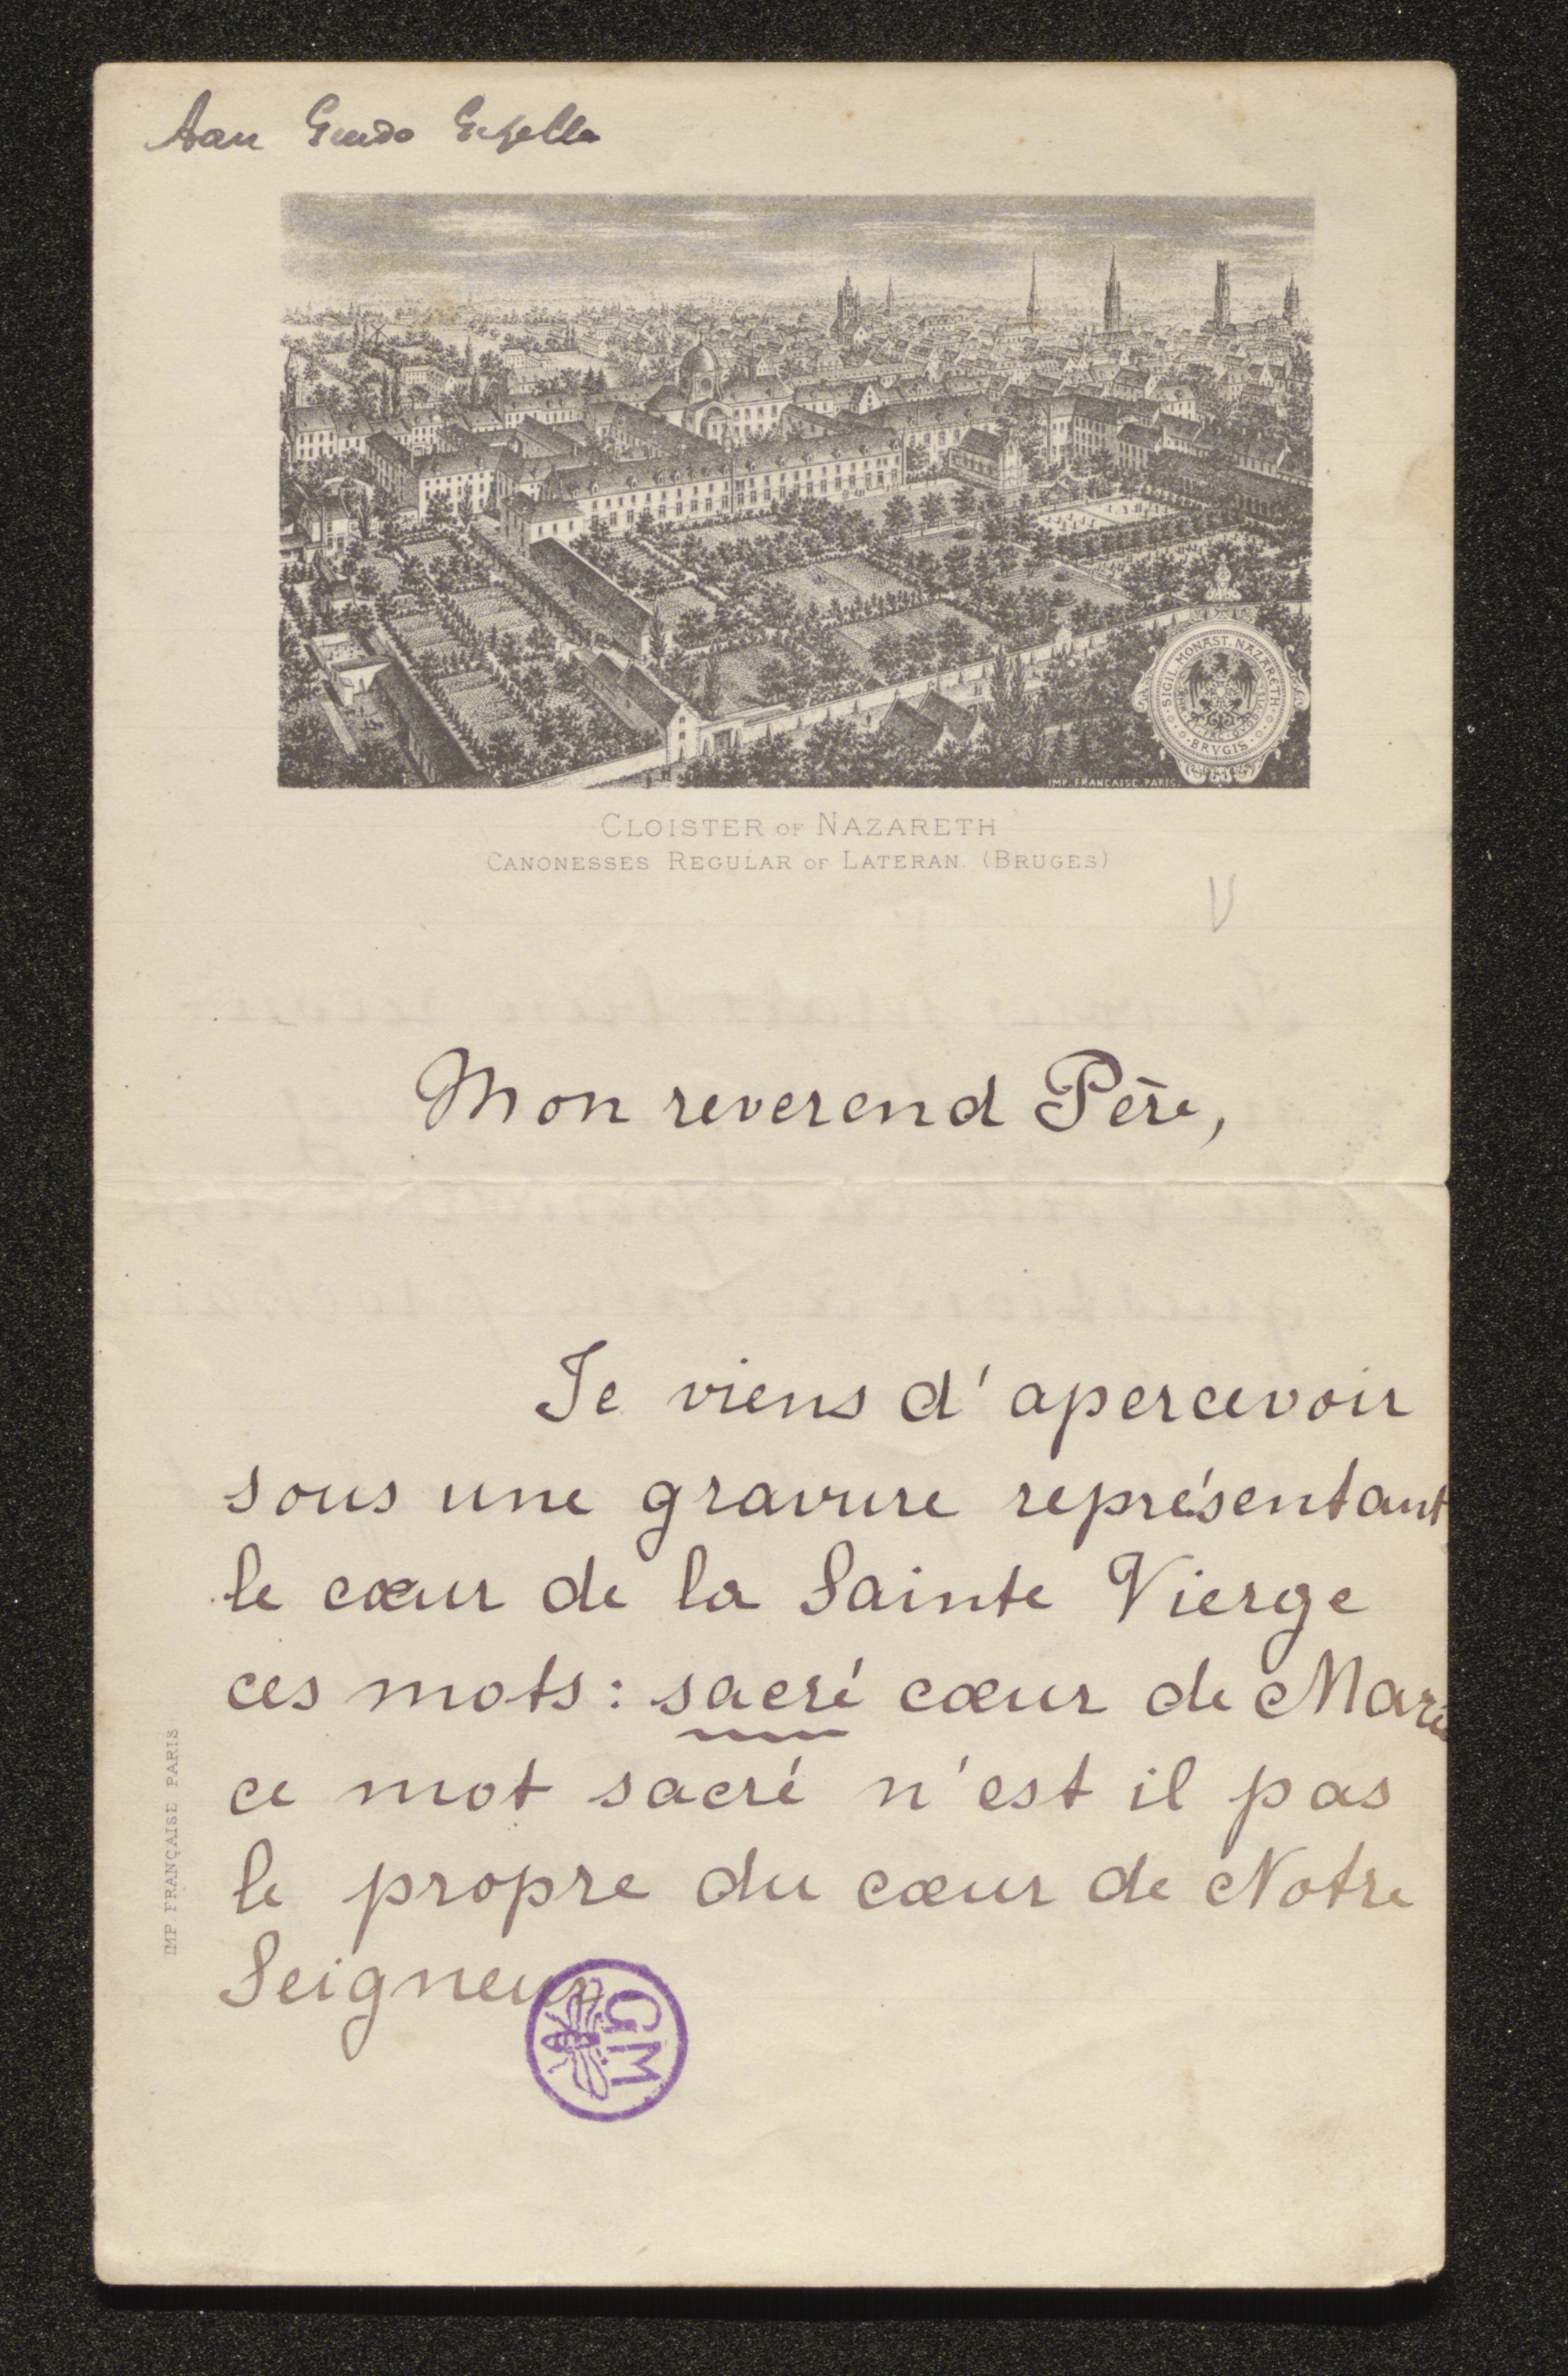 Aan Guido Gezelle
SIGIL. MONAST. NAZARETH
BRVGIS
IMP. FRANCAISE. PARIS.
CLOISTER OF NAZARETH
CANONESSES REGULAR OF LATERAN. (BRUGES)
Mon reverend Père,
Je viens d'apercevoir
sous une gravure représentant
le cœur de la Sainte Vierge
ces mots: sacré cœur de Marie
ce mot sacré n'est il pas
le propre du cœur de Notre
Seigneur
GM
IMP FRANÇAISE PARIS